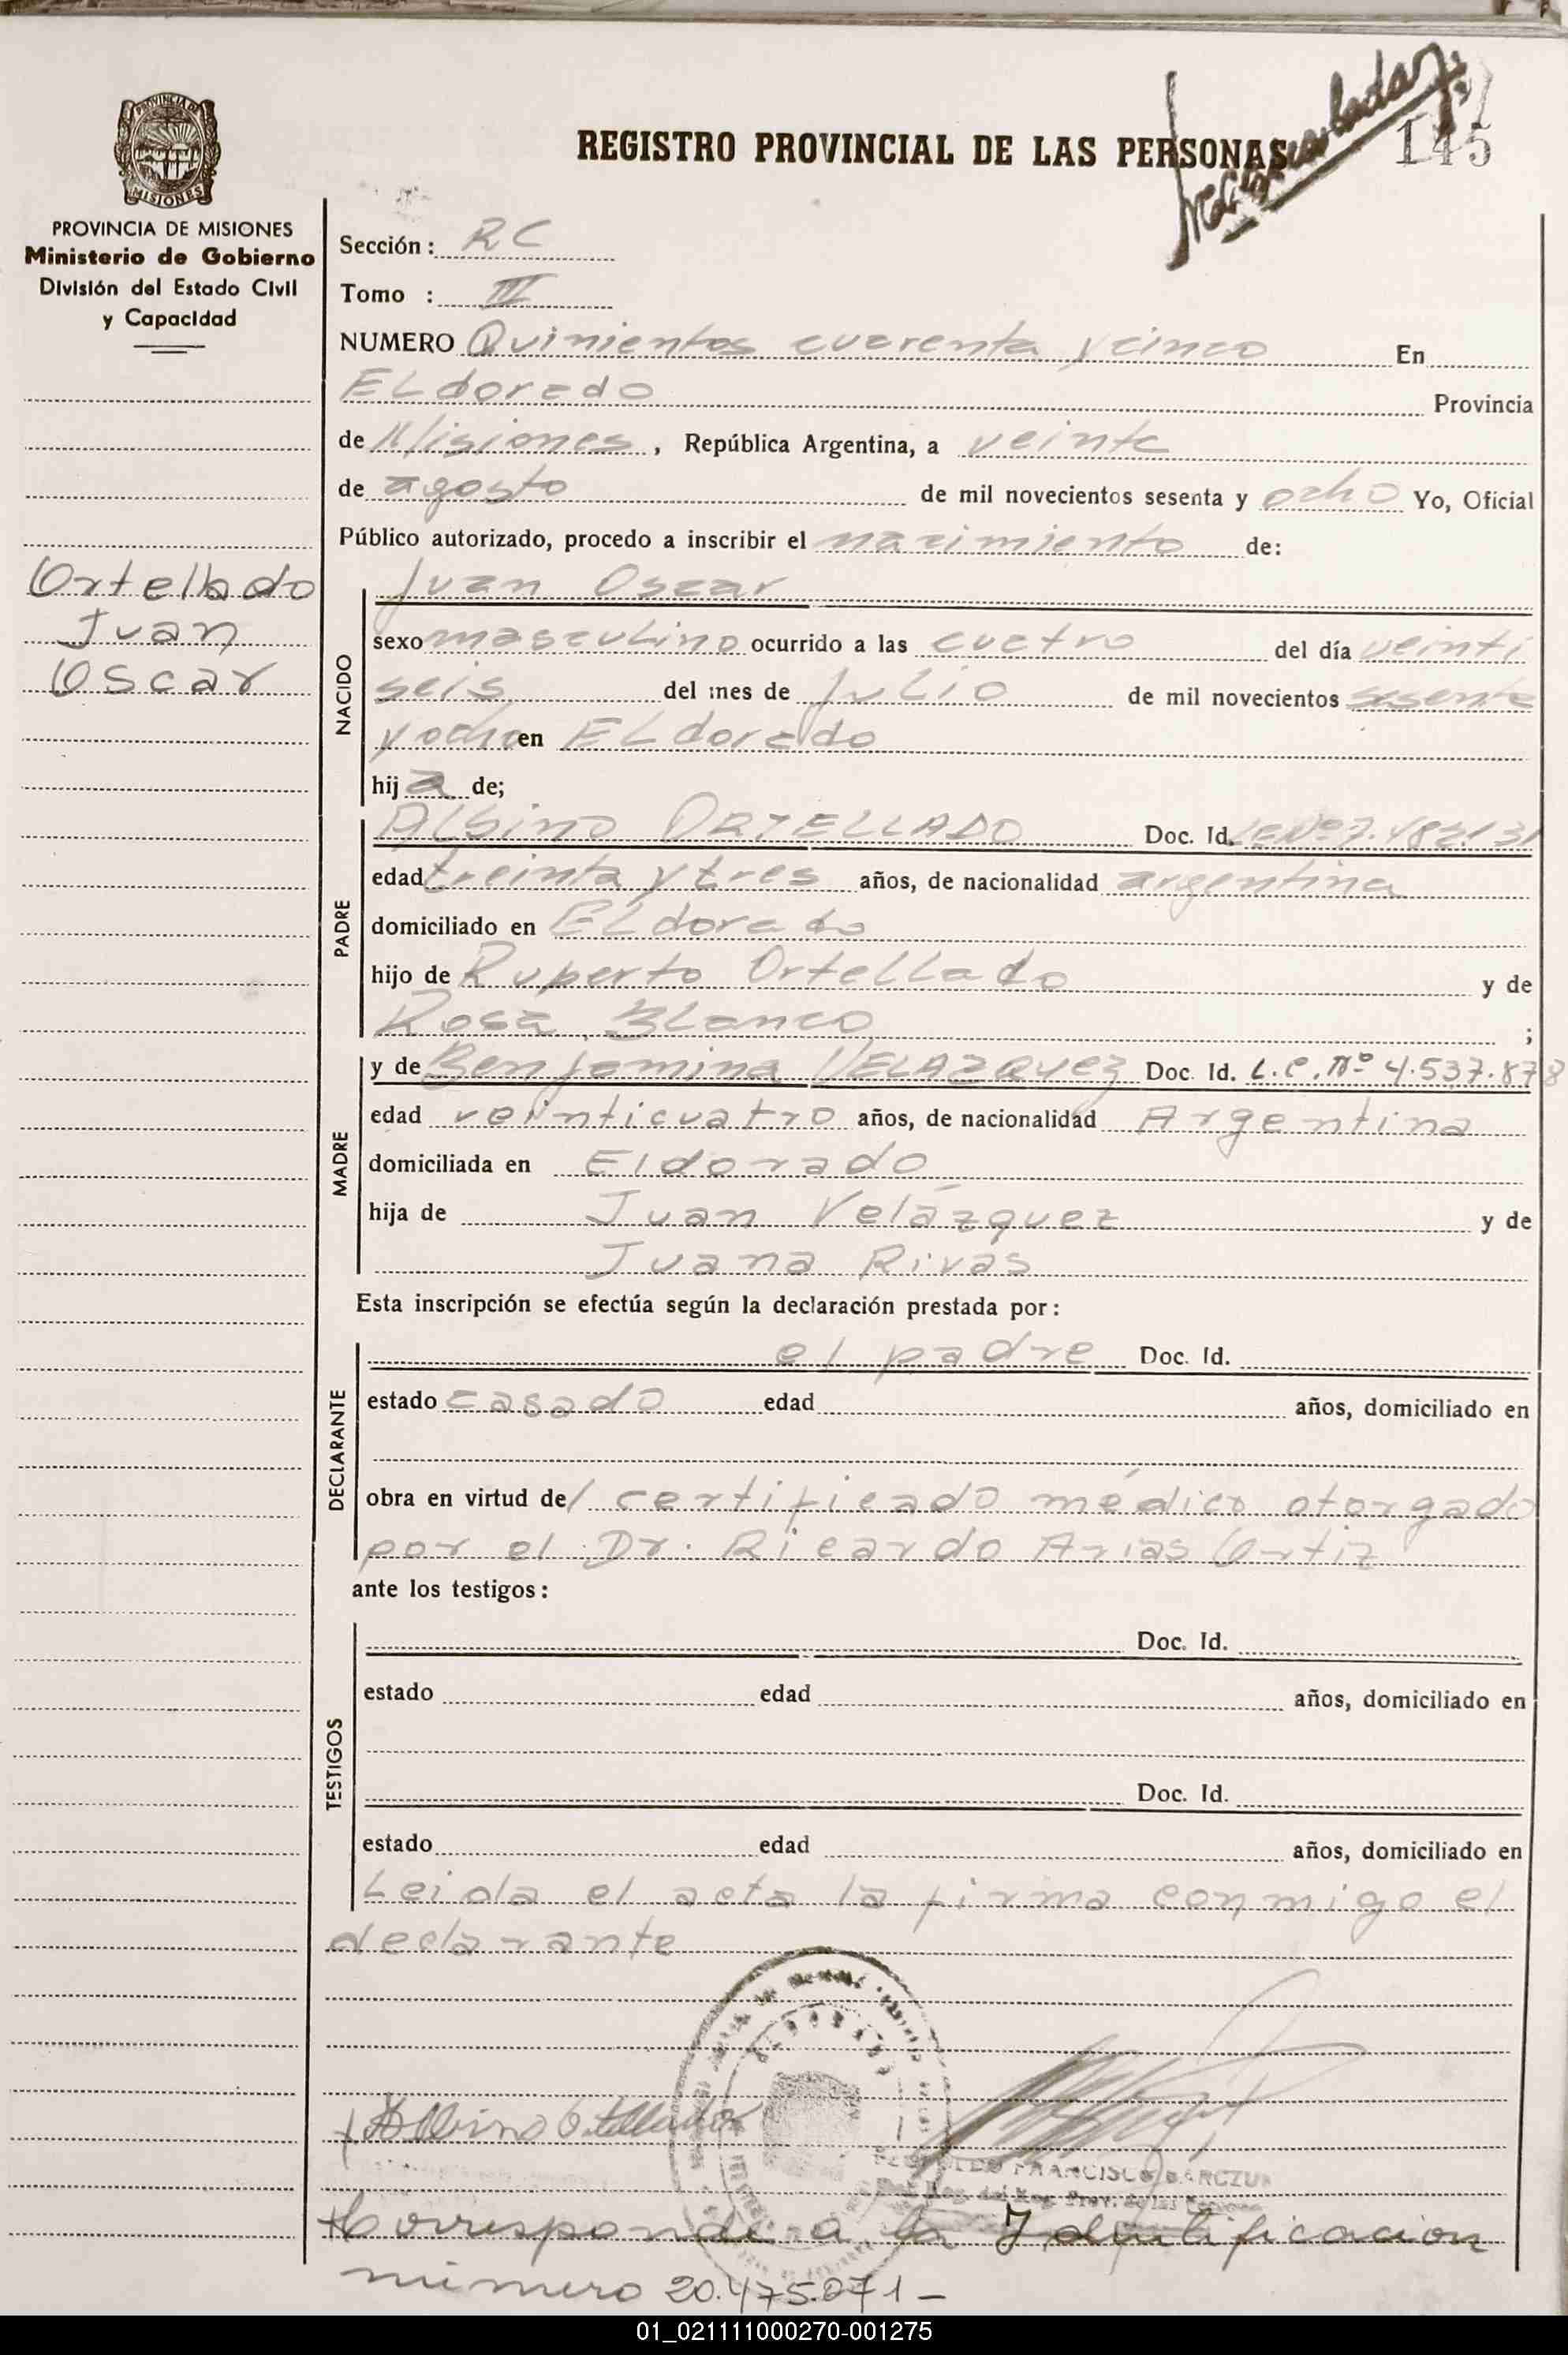 REGISTRO PROVINCIAL DE LAS PERSONAS
145
PROVINCIA DE
MISIONES
PROVINCIA DE MISIONES
Ministerio de Gobierno
División del Estado Civil
y Capacidad
Ortellado
Juan
Oscar
Sección: RC
Tomo : III
NUMERO Quinientos cuarenta y cinco En
ELdorado Provincia
de Misiones, República Argentina, a veinte
de agosto de mil novecientos sesenta y ocho Yo, Oficial
Público autorizado, procedo a inscribir el nacimiento de:
NACIDO
Juan Oscar
sexo masculino ocurrido a las cuatro del día veinti
seis del mes de Julio de mil novecientos sesenta
y ocho en ELdorado
hija de;
PADRE
Albino ORTELLADO Doc. Id. LE Nº 7.482.131
edad treinta y tres años, de nacionalidad argentina
domiciliado en ELdorado
hijo de Ruperto Ortellado y de
Rosa Blanco ;
MADRE
y de Benjamina VELAZQUEZ Doc. Id. L.C. Nº 4.537.878
edad veinticuatro años, de nacionalidad Argentina
domiciliada en Eldorado
hija de Juan Velázquez y de
Juana Rivas
Esta inscripción se efectúa según la declaración prestada por:
DECLARANTE
el padre Doc. Id.
estado casado edad años, domiciliado en
obra en virtud de/ certificado médico otorgado
por el Dr. Ricardo Arias Ortiz
ante los testigos:
TESTIGOS
Doc. Id.
estado edad años, domiciliado en
Doc. Id.
estado edad años, domiciliado en
Leida el acta la firma conmigo el
declarante
Albino Ortellado
FRANCISCO
Corresponde a la Identificacion
número 20.475.071-
01_021111000270-001275